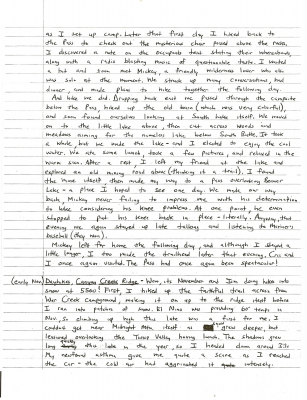 as I set up camp. Later that first day, I hiked back to
the Pass to check out the mysterious char poised above the area.
I discovered a note on the occupants tent stating their whereabouts,
along with a radio blasting music of questionable taste. I waited
a bit and soon met Mickey, a friendly wilderness lover who also
was solo at the moment. We struck up many conversations, had
dinner, and made plans to hike together the following day.
And hike we did. Dropping back over the pass through the campsite
below the Pass hiked up the old burn (which was very colorful)
and soon found ourselves looking at South Lake itself. We moved
on to the little lake above, then cut across woods and
meadows aiming for the nameless lake below South Butte. It took
a while, but we made the lake - and I elected to enjoy the cool
water. We ate some lunch, took a few pictures, and relaxed in the
warm sun. After a rest, I left my friend at the lake and
explored an old mining road above (thinking it a trail). I found
the mine itself, then made my way to a pass overlooking
Lake - a place I hoped to see one day. We made our way
back, Mickey never failing to impress me with his determination
to hike considering his knee problems. At one point, he even
stopped to put his knee back in place - literally. Anyway, that
evening we again stayed up late talking and listening to Mariner's
baseball (they won).
Mickey left for home the following day, and although I stayed a
little longer, I too made the trailhead later that evening. Cris and
I once again visited. The Pass had once again been spectacular!
(early Nov) Daybiker, Canyon Creek Ridge - Wow, its November and I'm doing hikes into
snow at 5500! First, I hiked up the faithful trail across from
War Creek Campground, making it on up to the ridge itself before
I ran into patches of snow. El Nino was providing 60° temps in
Nov, so climbing up high this late was a first for me. I
couldn't get near Midnight Mtn itself as snow grew deeper, but
leisured overlooking the Twisp Valley having lunch. The shadows grew
long this late in the year, so I headed down around 3:30
My newfound asthma gave me quite a scare as I reached
the car - the cold air had aggravated it quite intensely.